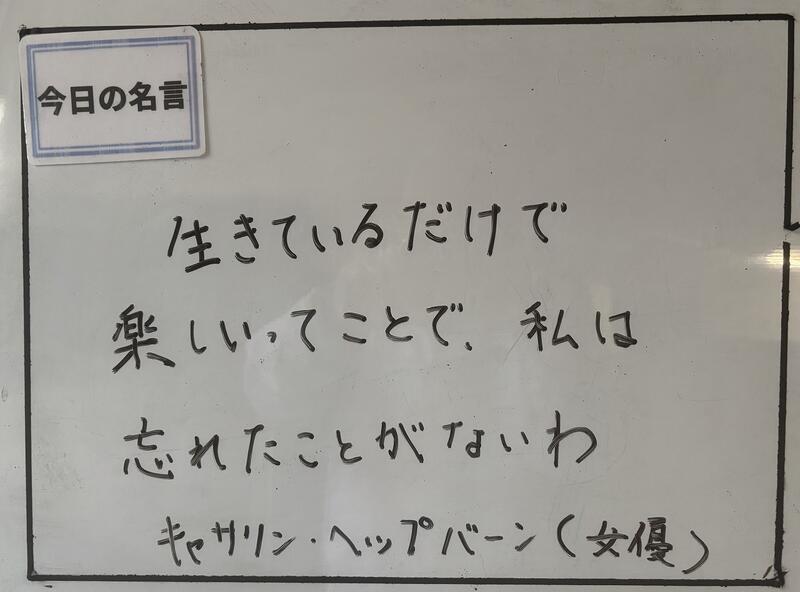 今日の名言
生きているだけで
楽しいってことで、私は
忘れたことがないわ
キャサリン・ヘップバーン(女優)